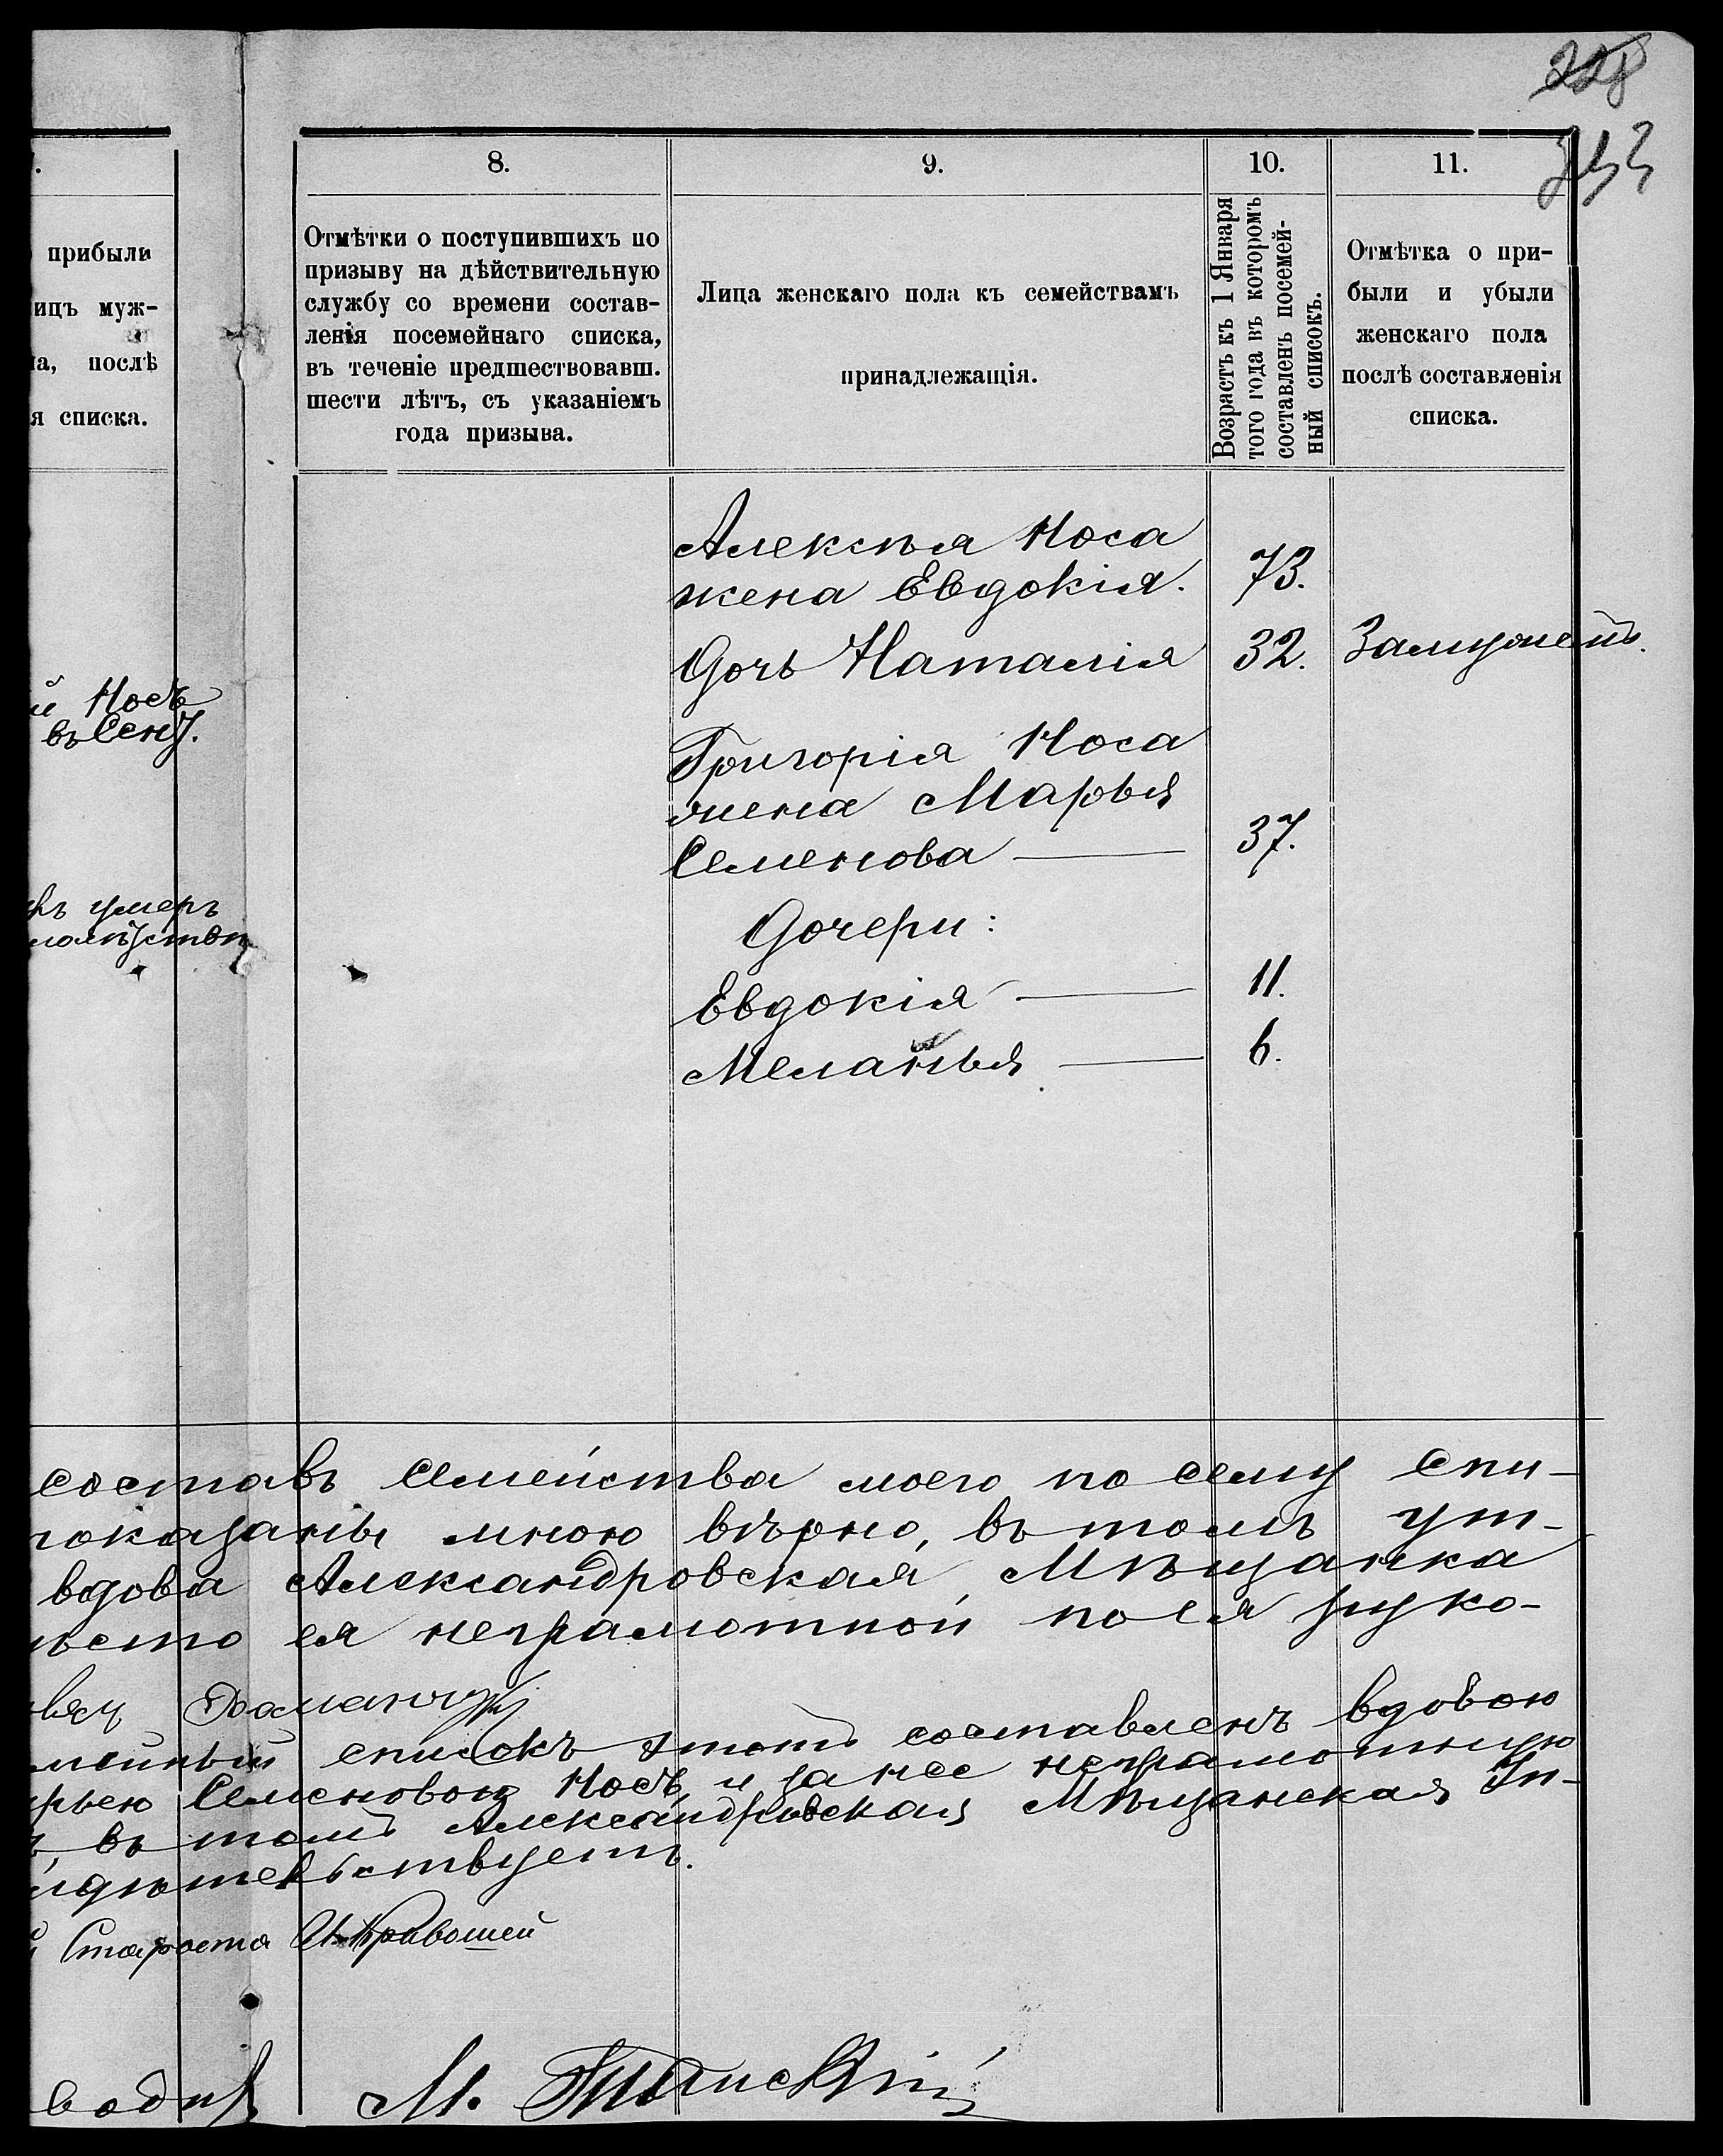 228
8.
9.
10.
11.
прибыли
ицъ муж-
а, послѣ
я списка.
Отмѣтки о поступившихъ по
призыву на дѣйствительную
службу со времени состав-
ленія посемейнаго списка,
въ теченіе предшествовавш.
шести лѣтъ, съ указаніемъ
года призыва.
Лица женскаго пола къ семействамъ
принадлежащія.
Возрастъ къ 1 Января
того года въ которомъ
составленъ посемей-
ный списокъ.
Отмѣтка о при-
были и убыли
женскаго пола
послѣ составленія
списка.
Алексѣя Носа
жена Евдокія. 73.
Дочь Наталія 32. Замужемъ.
й Носъ
въ
Григорія Носа
жена Марья
Семенова — 37.
умеръ
Дочери:
Евдокія — 11.
Меланья — 6.
составъ Семейства моего по сему спи-
показаны мною вѣрно, въ томъ ут-
вдова Александровская Мѣщанка
мѣсто ея неграмотной по ея руко-
мейный списокъ этотъ составленъ вдовою
рьею Семеновою Носъ, и за нее неграмотную
въ томъ Александровская Мѣщанская Уп-
идѣтельствуетъ.
Староста Кривошей
водил М.